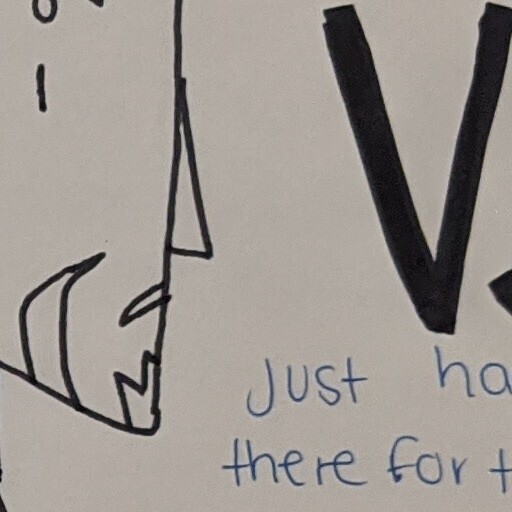 V
Just
there for